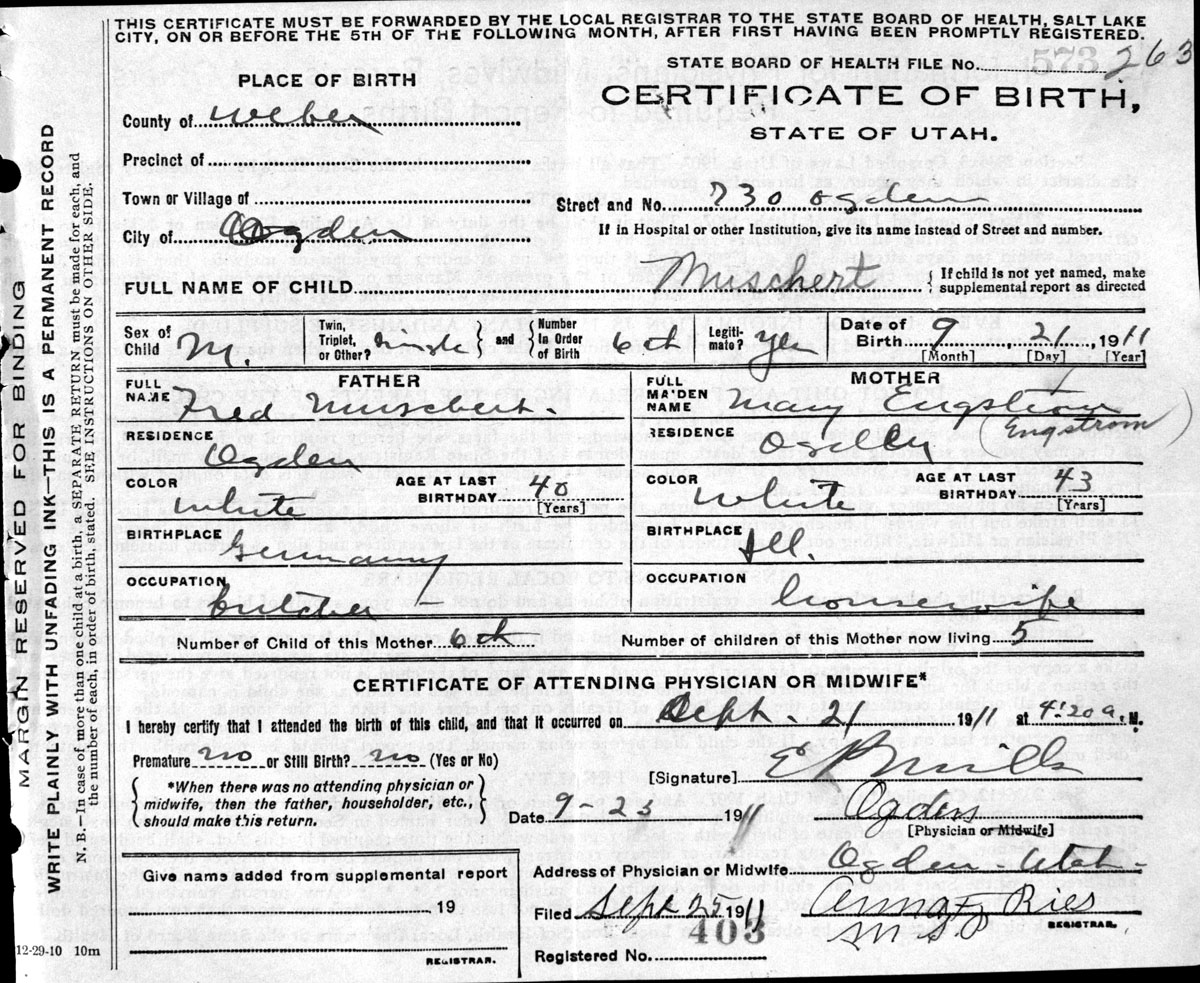 THIS CERTIFICATE MUST BE FORWARDED BY THE LOCAL REGISTRAR TO THE STATE BOARD OF HEALTH, SALT LAKE
CITY, ON OR BEFORE THE 5TH OF THE FOLLOWING MONTH, AFTER FIRST HAVING BEEN PROMPTLY REGISTERED.
STATE BOARD OF HEALTH FILE No. 573 263
PLACE OF BIRTH
CERTIFICATE OF BIRTH,
STATE OF UTAH.
County of Weber
Precinct of
Town or Village of
Street and No. 730 Ogden
City of Ogden
If in Hospital or other Institution, give its name instead of Street and number.
FULL NAME OF CHILD Muschert { If child is not yet named, make
supplemental report as directed
Sex of Child M. Twin, Triplet, or Other? single } and { Number in Order of Birth 6th Legiti- mate? yes Date of Birth 9 21, 1911
[Month] [Day] [Year]
FATHER
FULL NAME Fred Muschert.
RESIDENCE Ogden
COLOR White AGE AT LAST BIRTHDAY 40 [Years]
BIRTHPLACE Germany
OCCUPATION Butcher
MOTHER
FULL MAIDEN NAME Mary Engstrom
(Engstrom)
RESIDENCE Ogden
COLOR White AGE AT LAST BIRTHDAY 43 [Years]
BIRTHPLACE Ill.
OCCUPATION housewife
Number of Child of this Mother 6th Number of children of this Mother now living 5
CERTIFICATE OF ATTENDING PHYSICIAN OR MIDWIFE*
I hereby certify that I attended the birth of this child, and that it occurred on Sept. 21 1911 at 4:20 a. M.
Premature no or Still Birth? no (Yes or No)
[Signature] E P Mills
{ *When there was no attending physician or
midwife, then the father, householder, etc.,
should make this return. }
Date 9-23 1911 Ogden
[Physician or Midwife]
Give name added from supplemental report
19
REGISTRAR.
Address of Physician or Midwife Ogden Utah.
Filed Sept 25 1911 Anna F Ries
REGISTRAR.
403
Registered No.
12-29-10 10m
MARGIN RESERVED FOR BINDING
WRITE PLAINLY WITH UNFADING INK—THIS IS A PERMANENT RECORD
N. B.—In case of more than one child at a birth, a SEPARATE RETURN must be made for each, and
the number of each, in order of birth, stated. SEE INSTRUCTIONS ON OTHER SIDE.